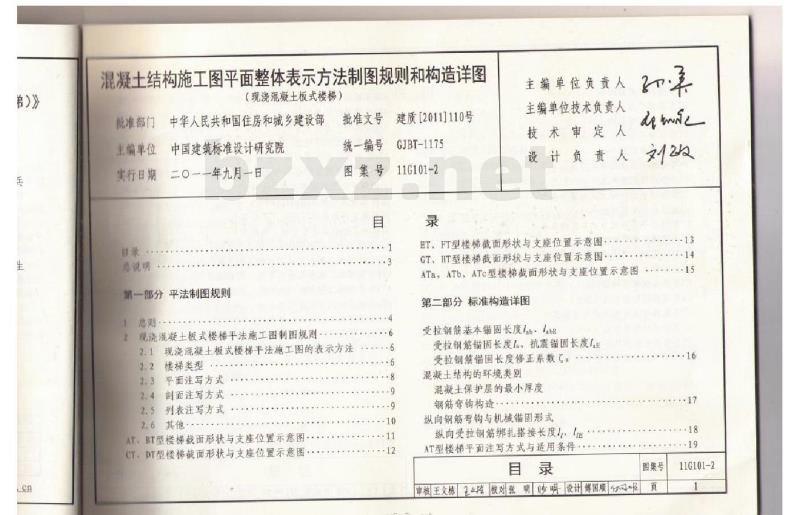 混凝土结构施工图平面整体表示方法制图规则和构造详图
(现浇混凝土板式楼梯)
批准部门 中华人民共和国住房和城乡建设部 批准文号 建质[2011]110号
主编单位 中国建筑标准设计研究院 统一编号 GJBT-1175
实行日期 二〇一一年九月一日 图集号 11G101-2
主编单位负责人
主编单位技术负责人
技术审定人
设计负责人
bzxz.net
目 录
目录 1
总说明 3
第一部分 平法制图规则
1 总则 4
2 现浇混凝土板式楼梯平法施工图制图规则 6
2.1 现浇混凝土板式楼梯平法施工图的表示方法 6
2.2 楼梯类型 6
2.3 平面注写方式 8
2.4 剖面注写方式 9
2.5 列表注写方式 9
2.6 其他 10
AT、BT型楼梯截面形状与支座位置示意图 11
CT、DT型楼梯截面形状与支座位置示意图 12
ET、FT型楼梯截面形状与支座位置示意图 13
GT、HT型楼梯截面形状与支座位置示意图 14
ATa、ATb、ATc型楼梯截面形状与支座位置示意图 15
第二部分 标准构造详图
受拉钢筋基本锚固长度lab、labE
受拉钢筋锚固长度la、抗震锚固长度laE
受拉钢筋锚固长度修正系数ζa 16
混凝土结构的环境类别
混凝土保护层的最小厚度
钢筋弯钩构造 17
纵向钢筋弯钩与机械锚固形式
纵向受拉钢筋绑扎搭接长度ll、llE 18
AT型楼梯平面注写方式与适用条件 19
目 录 图集号 11G101-2
审核 王文栋 校对 张明 设计 傅国顺 页 1